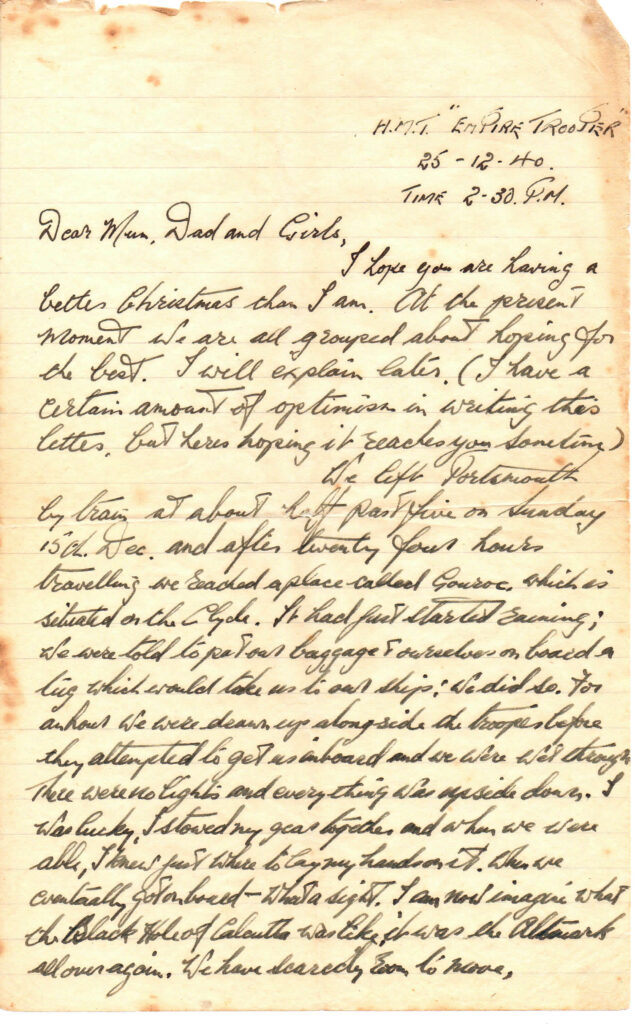 H.M.T. "EMPIRE TROOPER"
25-12-40.
TIME 2-30. P.M.
Dear Mum, Dad and Girls,
I hope you are having a
better Christmas than I am. At the present
moment we are all grouped about hoping for
the best. I will explain later. (I have a
certain amount of optimism in writing this
letter, but heres hoping it reaches you sometime)
We left Portsmouth
by train at about half past five on Sunday
15th. Dec. and after twenty four hours
travelling we reached a place called Gouroc. which is
situated on the Clyde. It had just started raining;
we were told to put our baggage & ourselves on board a
tug which would take us to our ships; we did so. For
an hour we were drawn up alongside the trooper before
they attempted to get us inboard and we were wet through
There were no lights and everything was upside down. I
was lucky, I stowed my gear together and when we were
able, I knew just where to lay my hands on it. When we
eventually got on board - what a sight. I can now imagine what
the Black Hole of Calcutta was like, it was the Altmark
all over again. We have scarcely room to move,